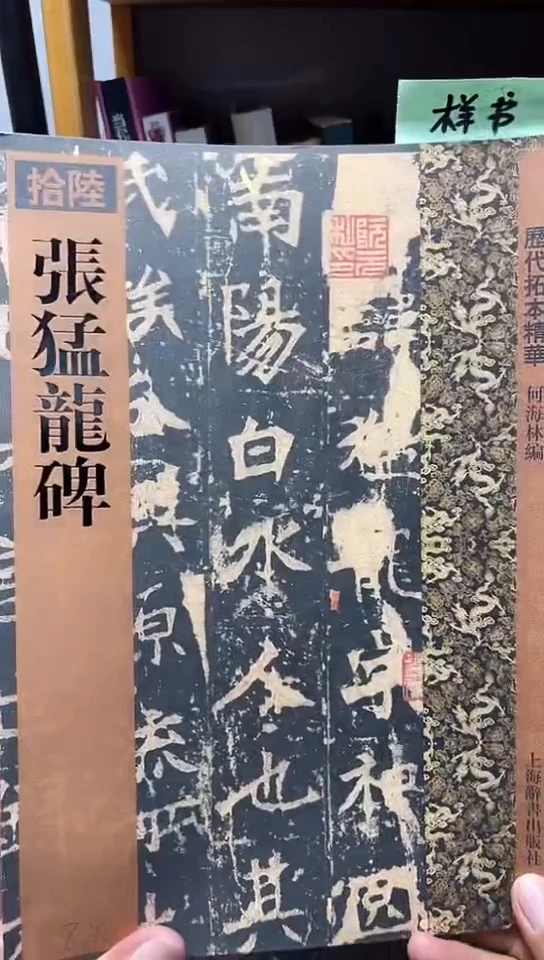 样书
拾陸
張猛龍碑
歷代拓本精華
何海林編
上海辭書出版社
諱猛龍字神
南陽白水人也其
氏族分興